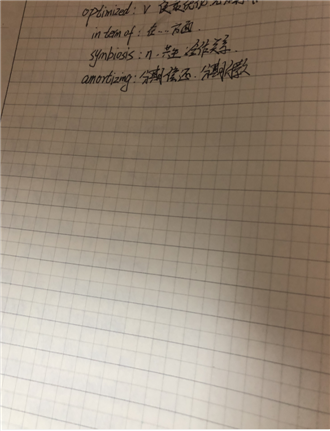 optimized: v
in term of: 在...方面
symbiosis: n. 共生 合作关系.
amortizing: 分期偿还. 分期付款